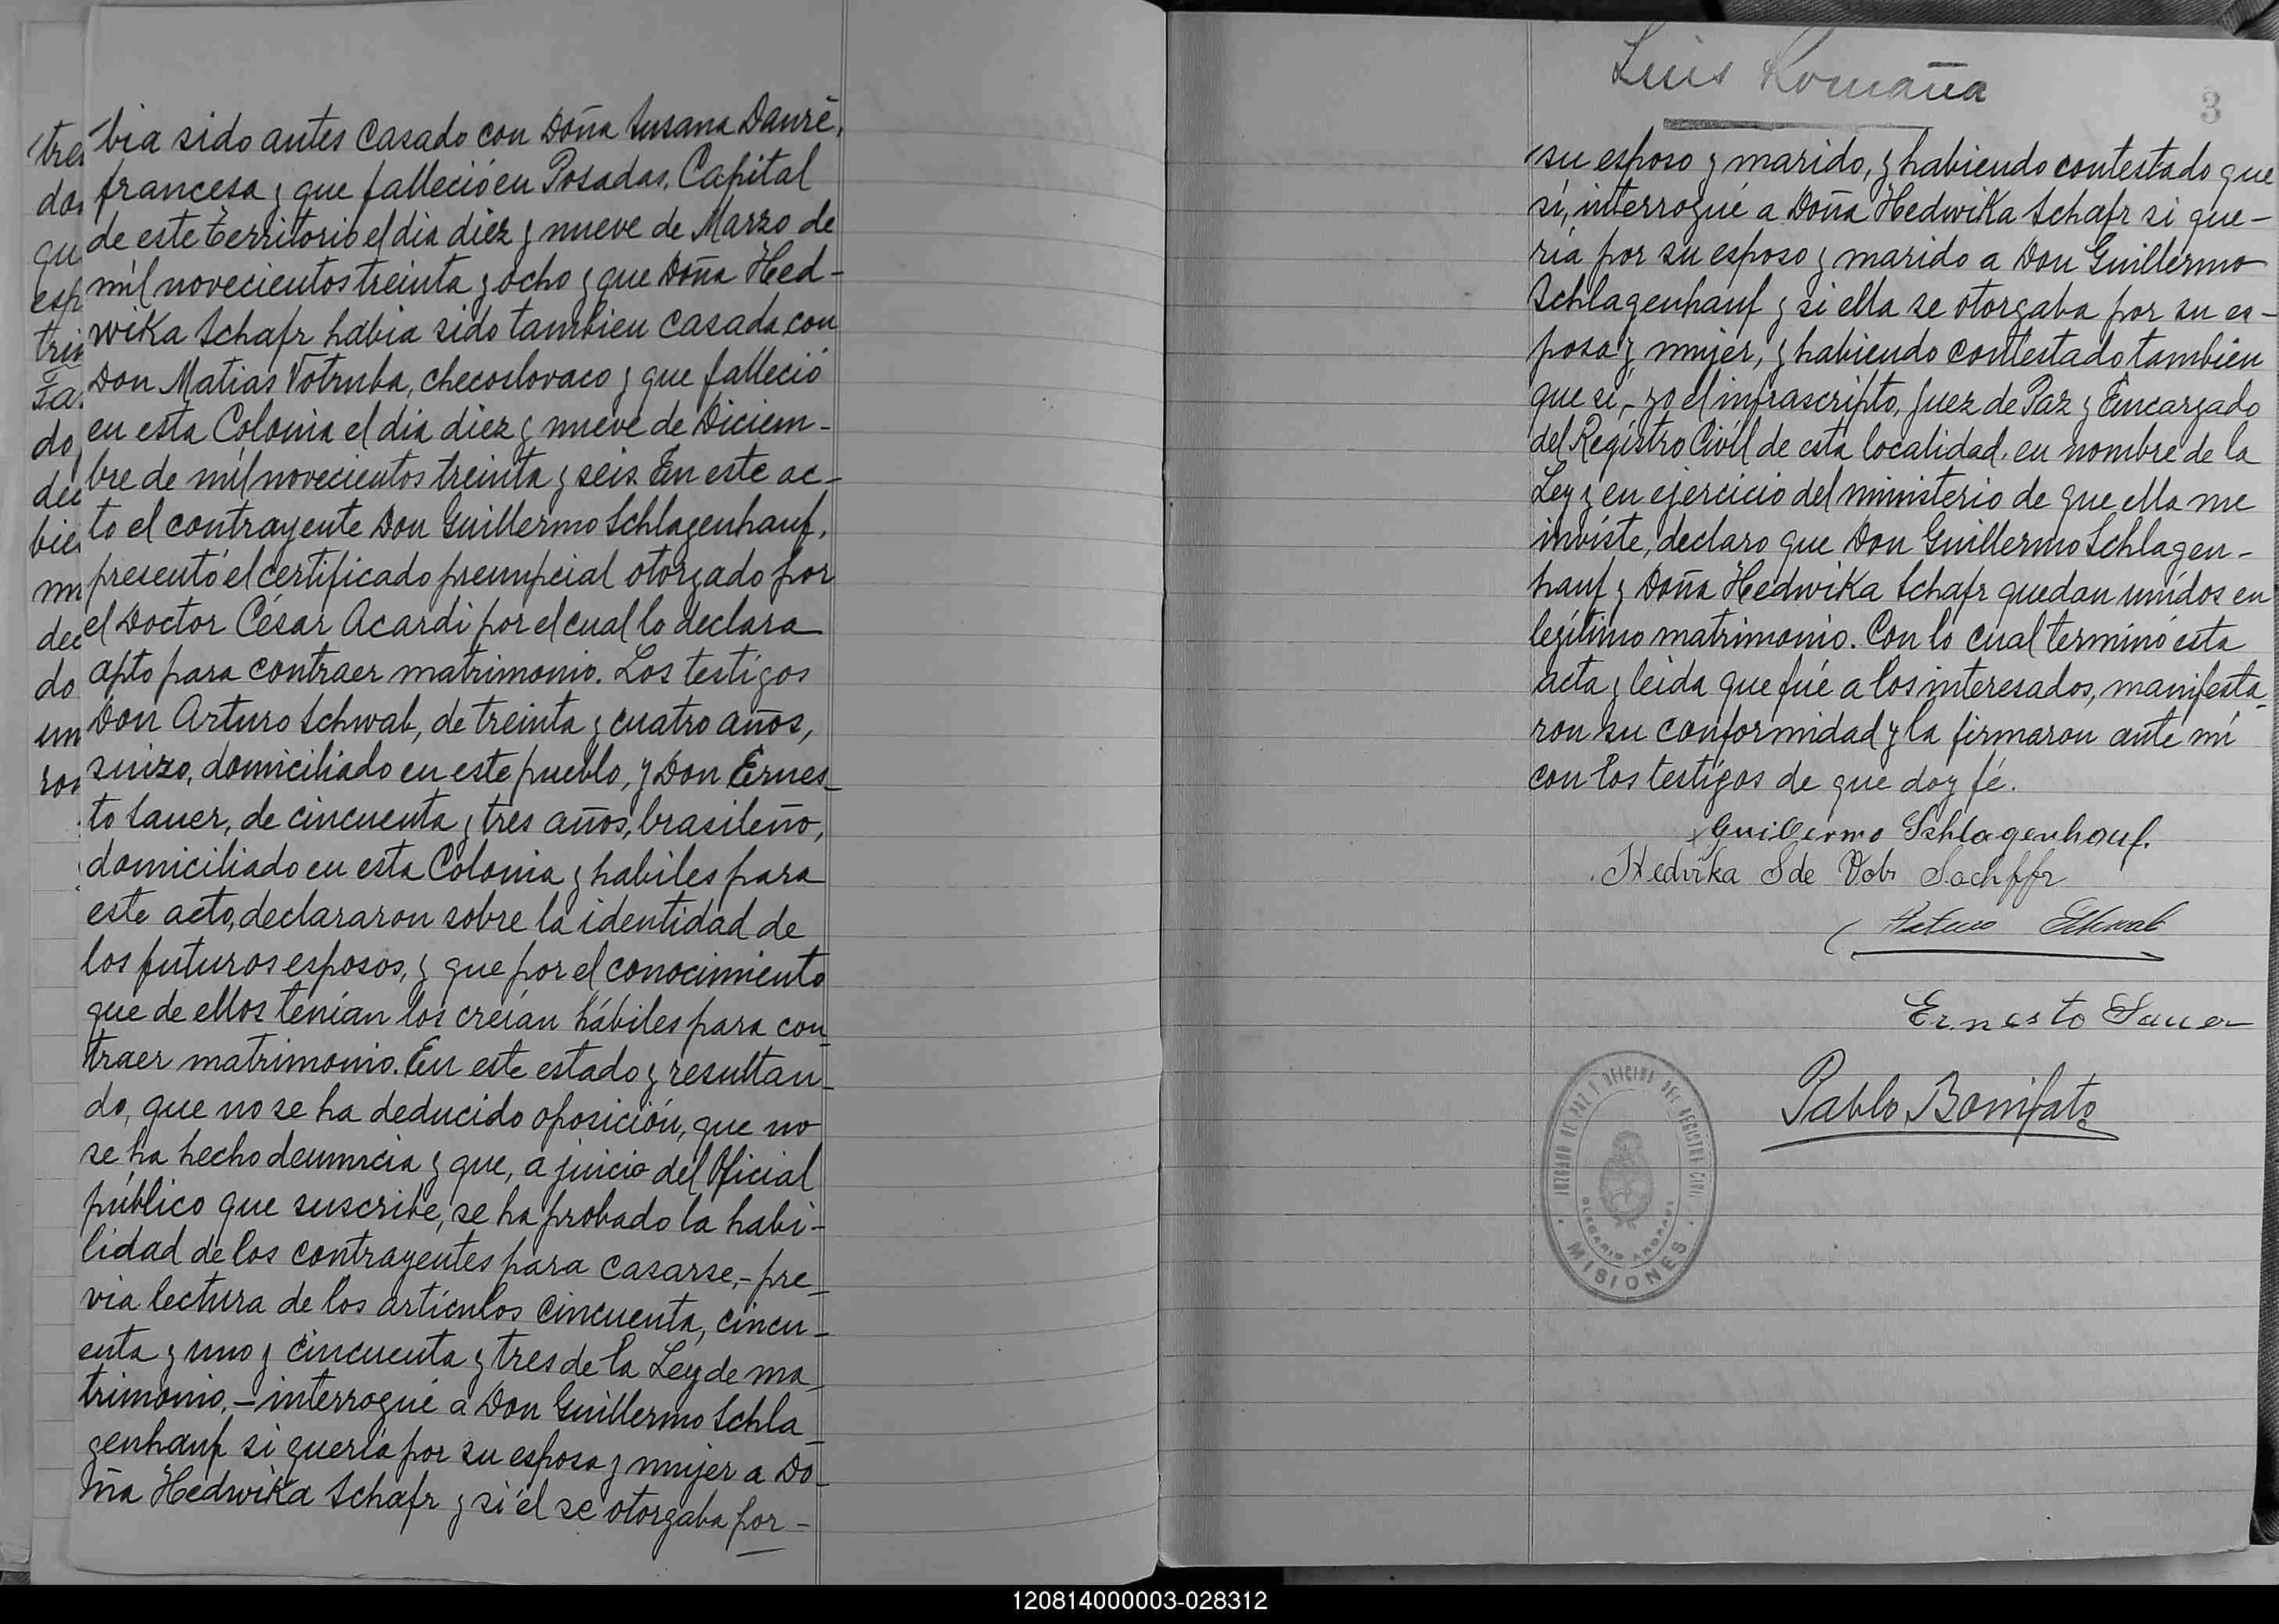 bia sido antes casado con Doña Susana Dauré,
francesa y que falleció en Posadas, Capital
de este territorio el dia diez y nueve de Marzo de
mil novecientos treinta y ocho y que Doña Hed-
wika Schafr habia sido tambien casada con
Don Matias Votruba, checoslovaco y que falleció
en esta Colonia el dia diez y nueve de Diciem-
bre de mil novecientos treinta y seis. En este ac-
to el contrayente Don Guillermo Schlagenhauf,
presentó el certificado prenupcial otorgado por
el Doctor César Acardi por el cual lo declara
apto para contraer matrimonio. Los testigos
Don Arturo Schwab, de treinta y cuatro años,
suizo, domiciliado en este pueblo, y Don Ernes-
to Sauer, de cincuenta y tres años, brasileño,
domiciliado en esta Colonia y habiles para
este acto, declararon sobre la identidad de
los futuros esposos, y que por el conocimiento
que de ellos tenían los creían hábiles para con-
traer matrimonio. En este estado y resultan-
do, que no se ha deducido oposición, que no
se ha hecho denuncia y que, a juicio del Oficial
público que suscribe, se ha probado la habi-
lidad de los contrayentes para casarse,- pre-
via lectura de los artículos cincuenta, cincu-
enta y uno y cincuenta y tres de la Ley de ma-
trimonio,- interrogué a Don Guillermo Schla-
genhauf si quería por su esposa y mujer a Do-
ña Hedwika Schafr y si él se otorgaba por-
Luis Romaña
3
su esposo y marido, y habiendo contestado que
sí, interrogué a Doña Hedwika Schafr si que-
ría por su esposo y marido a Don Guillermo
Schlagenhauf y si ella se otorgaba por su es-
posa y mujer, y habiendo contestado tambien
que sí,- yo el infrascripto, Juez de Paz y Encargado
del Registro Civil de esta localidad, en nombre de la
Ley y en ejercicio del ministerio de que ella me
inviste, declaro que Don Guillermo Schlagen-
hauf y Doña Hedwika Schafr quedan unidos en
legítimo matrimonio. Con lo cual terminó esta
acta y leida que fué a los interesados, manifesta-
ron su conformidad y la firmaron ante mí
con los testigos de que doy fé.
Guillermo Schlagenhauf.
Hedvika S de Vob Sachffr
Arturo Schwab
Ernesto Sauer
Pablo Bonifato
JUZGADO DE PAZ Y OFICINA DEL REGISTRO CIVIL
OLEGARIO ANDRADE
MISIONES
120814000003-028312